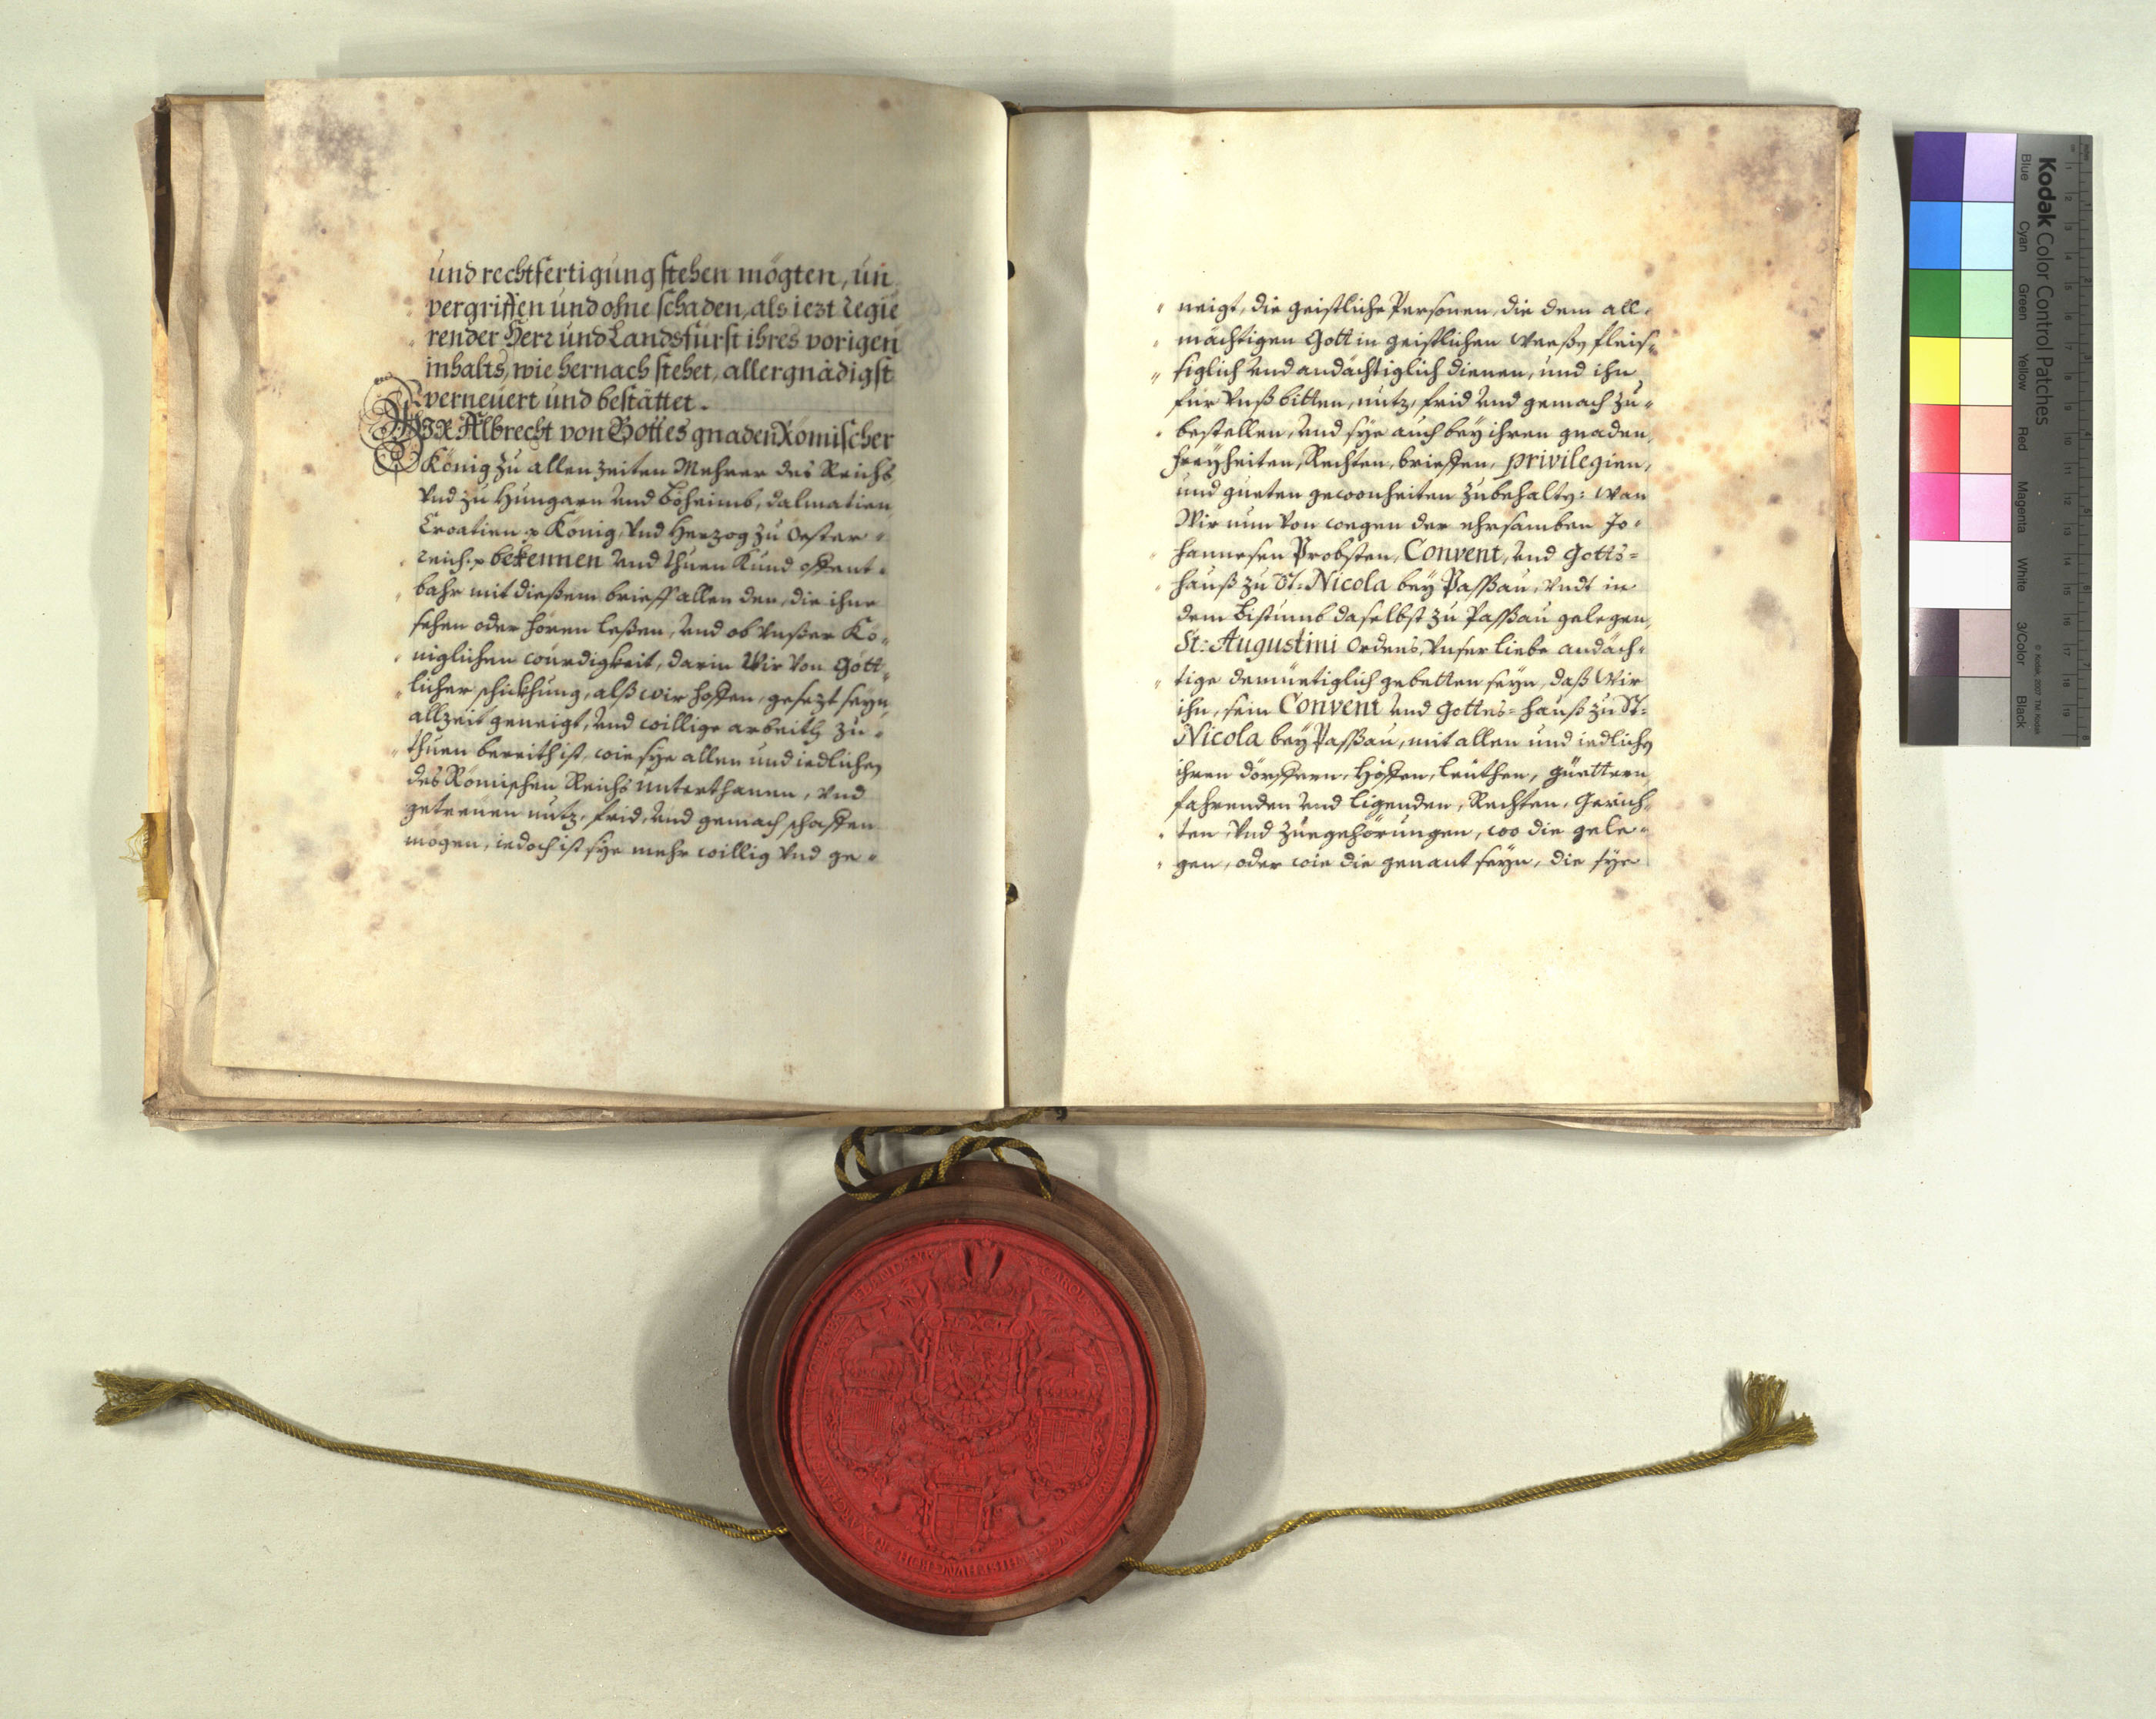 und rechtfertigung stehen mögten, un
vergriffen und ohne schaden, als iezt Regie
render Herr und Landsfürst ihres vorigen
inhalts, wie hernach stehet, allergnädigst
verneuert und bestättet.
WIR Albrecht von Gottes gnaden Römischer
König zu allen zeiten Mehrer des Reichs,
Vnd zu Hungarn und Böheimb, dalmatien,
Croatien König, Vnd Herzog zu Oester=
reich. bekennen und thuen kund offent=
bahr mit dießem brieff allen den, die ihne
sehen oder hören leßen, und ob Vnßer Kö=
niglichen würdigkeit, darin Wir von Gött=
licher schickhung, alß wir hoffen, gesezt seyn,
allzeit geneigt, und willige arbeith zu=
thuen bereith ist, wie sye allen und iedlichen
des Römischen Reichs unterthanen, Vnd
getreuen nutz, frid, und gemach schaffen
mögen, iedoch ist sye mehr willig Vnd ge=
neigt, die geistliche Personen, die dem all=
mächtigen Gott in geistlichen weeßen fleis=
siglich und andächtiglich dienen, und ihn
für Vnß bitten, nutz, frid und gemach zu=
bestellen, und sye auch bey ihren gnaden,
freyheiten, Rechten, brieffen, privilegien,
und gueten gewonheiten zubehalten: wan
Wir nun von wegen der ehrsamben Jo=
hannesen Probsten, Convent, und Gotts=
hauß zu St: Nicola bey Paßau, Vndt in
dem Bistumb daselbst zu Paßau gelegen,
St: Augustini Ordens, Vnser liebe andäch=
tige demüetiglich gebetten seyn, daß Wir
ihn, sein Convent und Gottes=hauß zu St:
Nicola bey Paßau, mit allen und iedlichen
ihren dörffern, Höffen, leüthen, güettern
fahrenden und ligenden, Rechten, Gerich=
ten Vnd zuegehörungen, wo die gele=
gen, oder wie die genant seyn, die sye
Kodak Color Control Patches
Blue Cyan Green Yellow Red Magenta White 3/Color Black
© Kodak, 2007 TM: Kodak